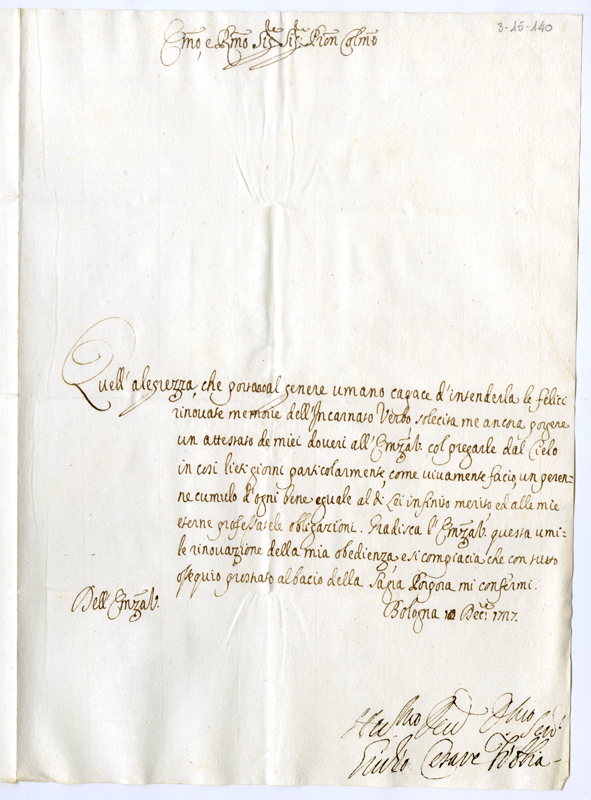 3-15-140
Emo, e Rmo Sig. Sig. Pron Colmo
Quell'alegrezza, che portano al genere umano capace d'intenderla le felici
rinovate memorie dell'Incarnato Verbo, solecita me ancora porgere
un attestato de miei doveri all'Emza V. col pregarle dal Cielo
in così lieti giorni particolarmente, come vivamente facio, un peren-
ne cumulo d'ogni bene eguale al di Lei infinito merito, ed alle mie
eterne professatele obligazioni. Gradisca l'Emza V. questa umi-
le rinovazione della mia obedienza, e si compiacia, che con tutto
ossequio prostrato al bacio della Sagra Porpora mi confermi.
Dell'Emza V.
Bologna Decre 1717.
Giulio Cesare